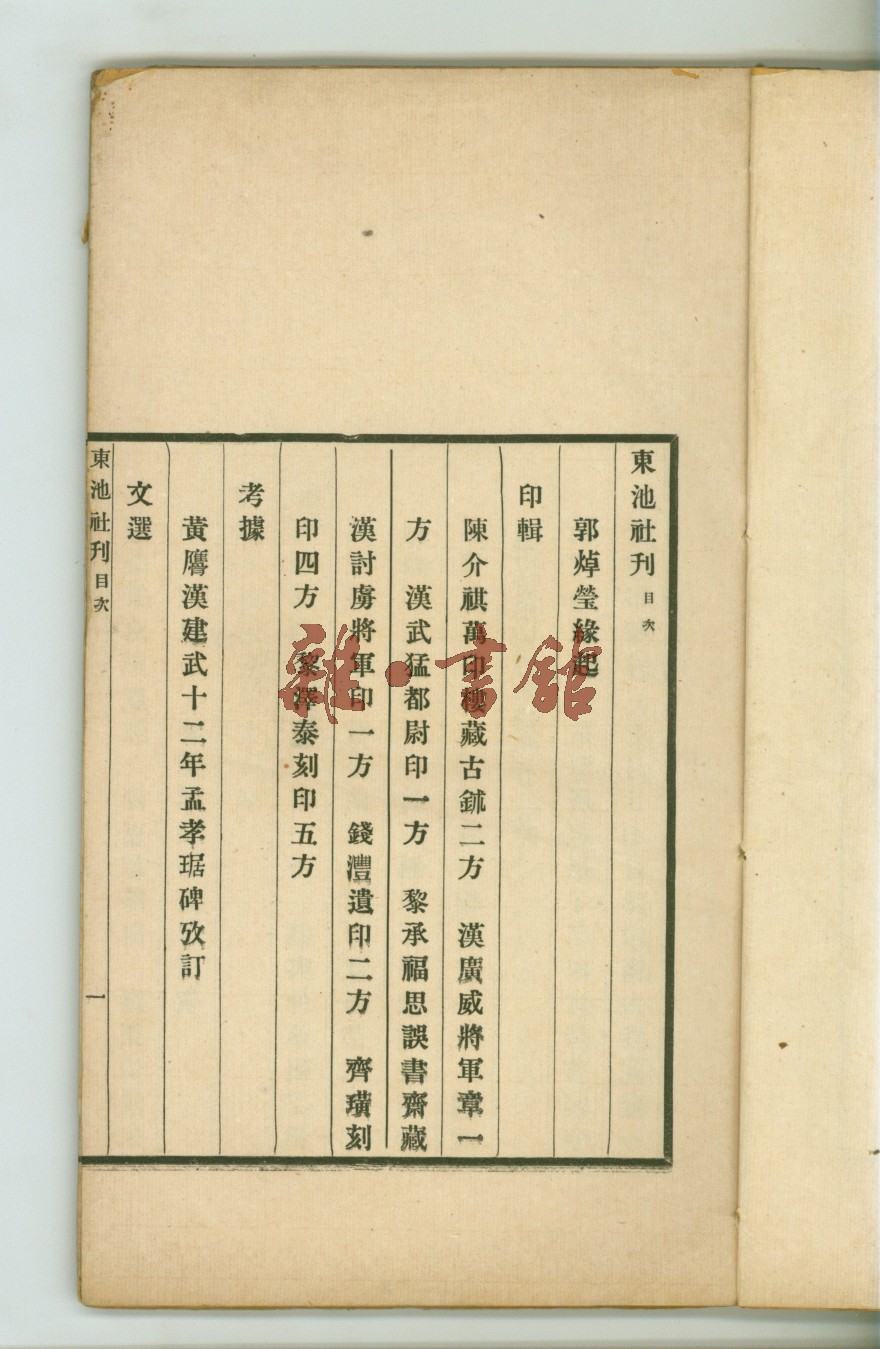 東池社刊 目次
郭焯瑩緣起
印輯
陳介祺萬印樓藏古鉥二方 漢廣威將軍章一
方 漢武猛都尉印一方 黎承福思誤書齋藏
漢討虜將軍印一方 錢灃遺印二方 齊璜刻
印四方 黎澤泰刻印五方
考據
黃膺漢建武十二年孟孝琚碑攷訂
文選
東池社刊 目次 一
雜·書館